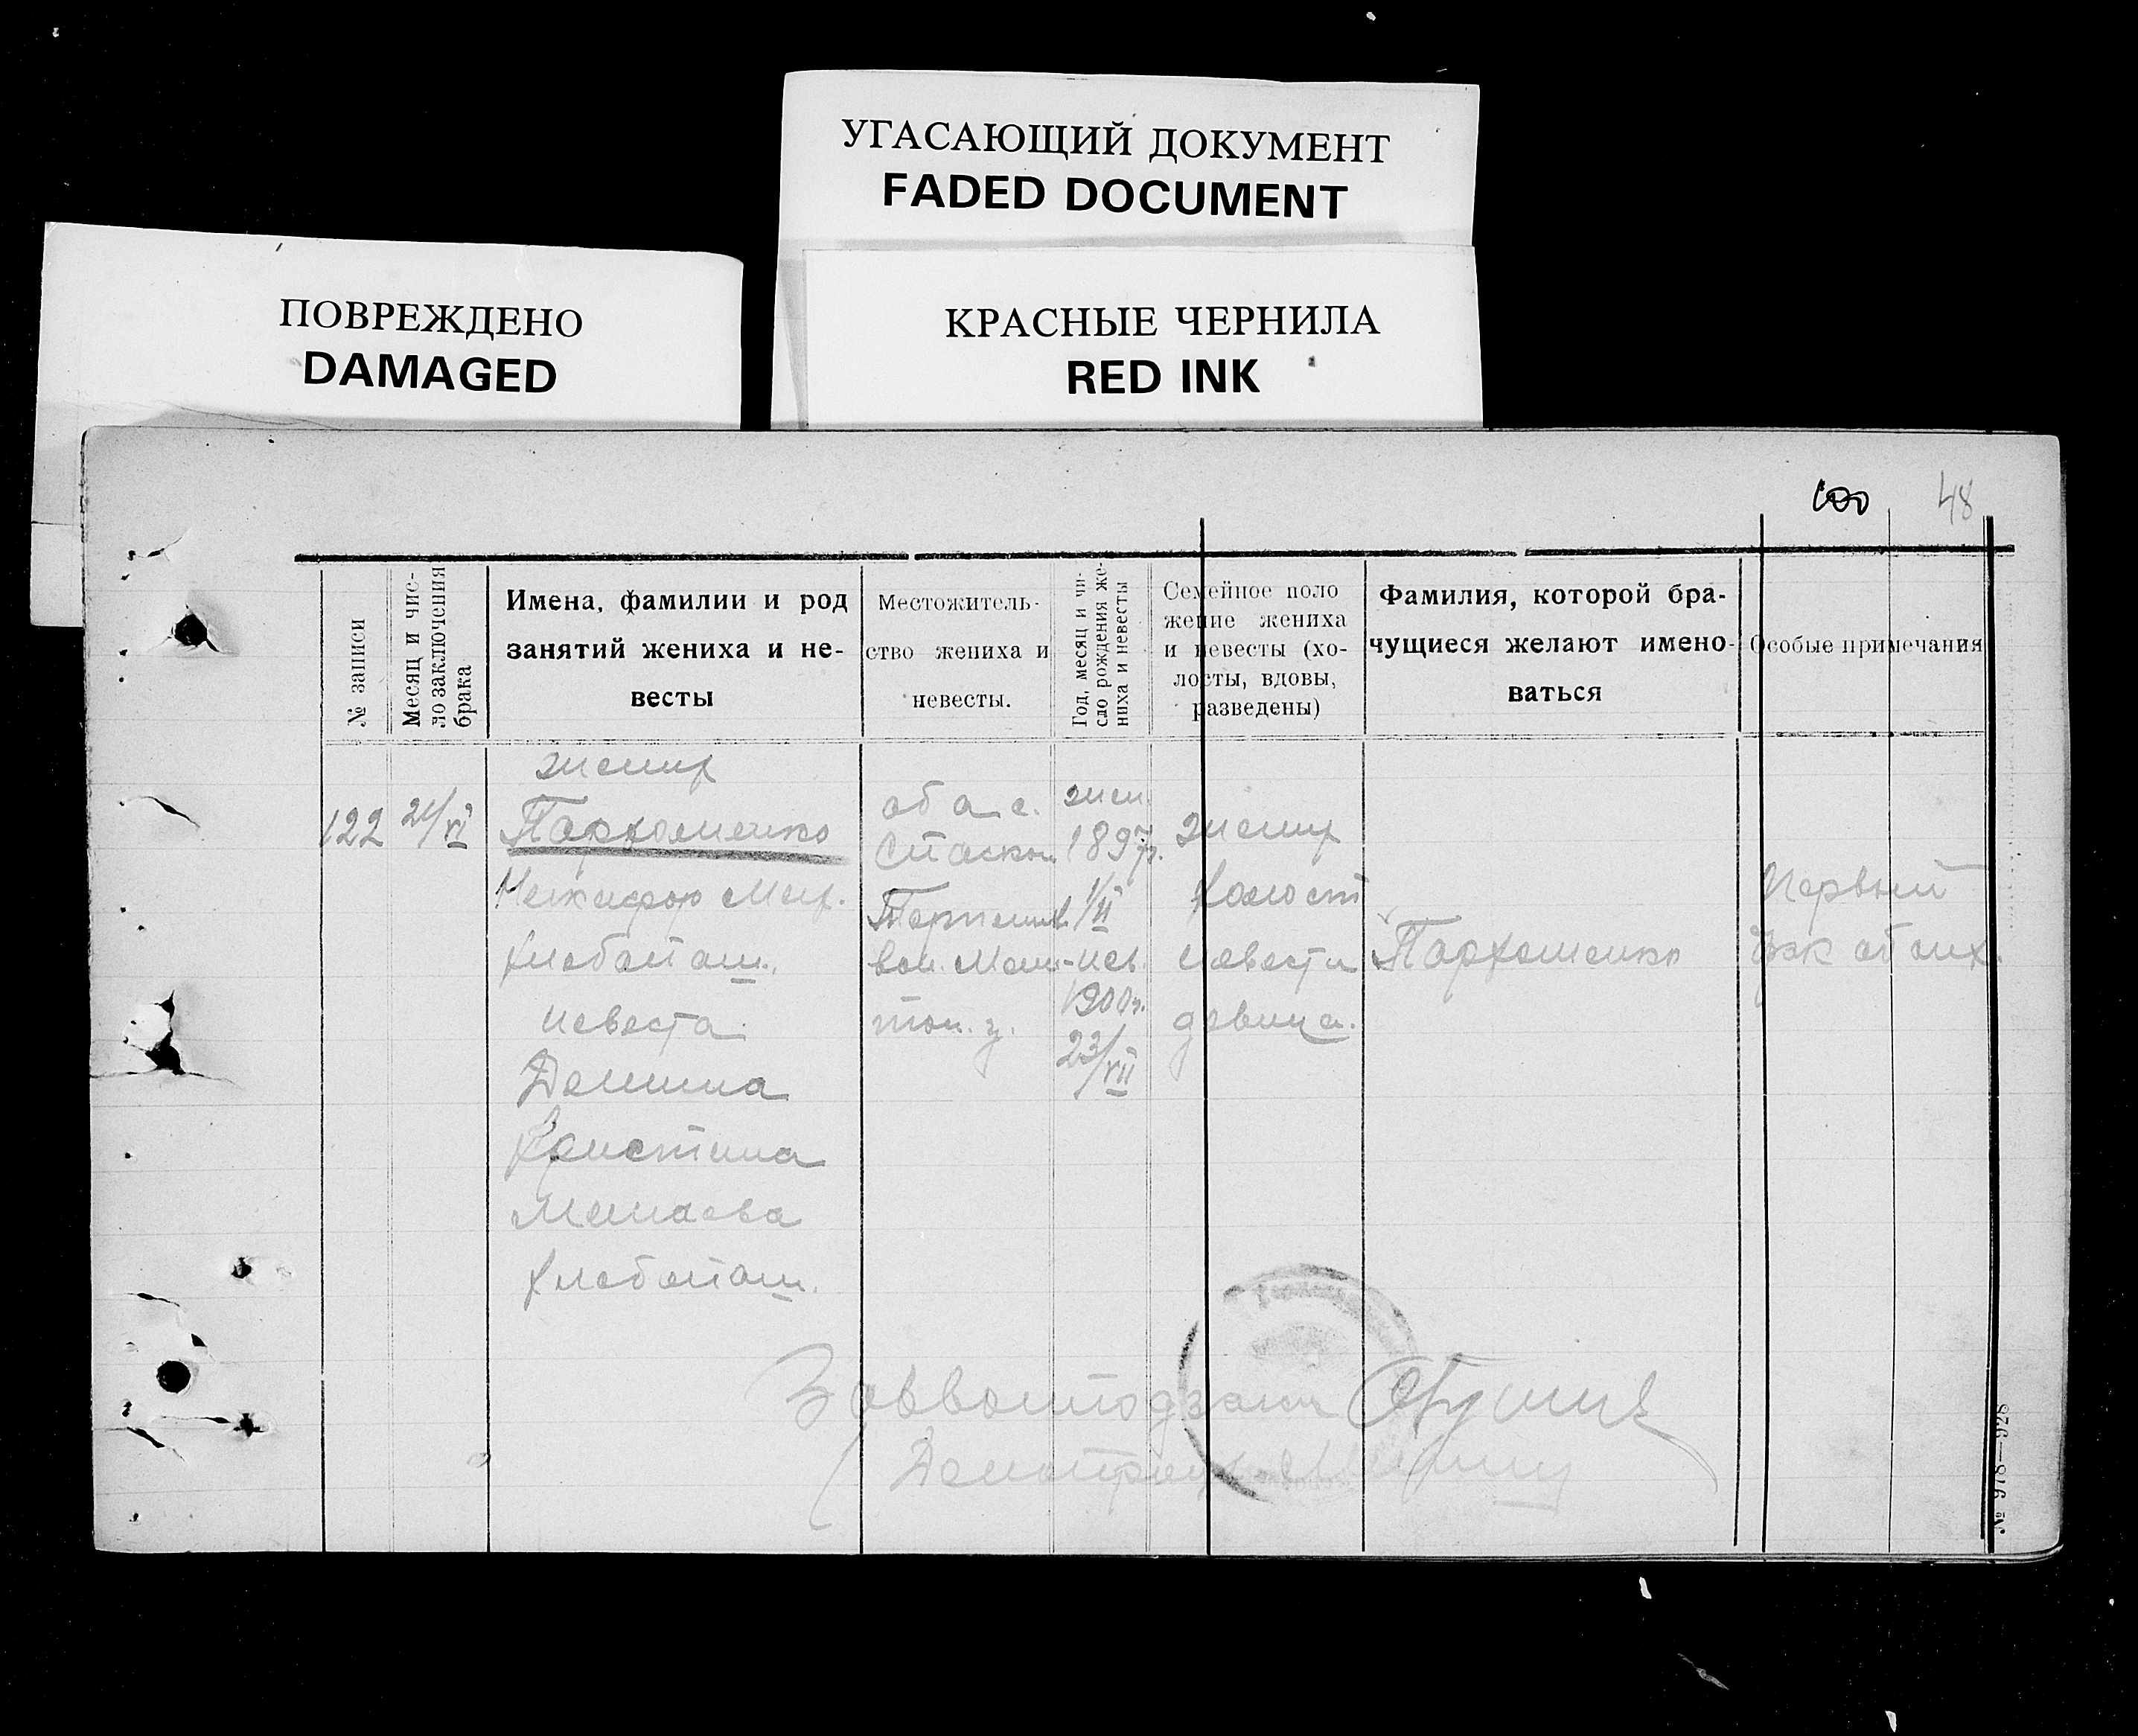 УГАСАЮЩИЙ ДОКУМЕНТ
FADED DOCUMENT
ПОВРЕЖДЕНО
DAMAGED
КРАСНЫЕ ЧЕРНИЛА
RED INK
48
№ записи
Месяц и чис-
ло заключения
брака
Имена, фамилии и род
занятий жениха и не-
весты
Местожитель-
ство жениха и
невесты.
Год, месяц и чи-
сло рождения же-
ниха и невесты
Семейное поло
жение жениха
и невесты (хо-
лосты, вдовы,
разведены)
Фамилия, которой бра-
чущиеся желают имено-
ваться
Особые примечания
122
21/VI
жених
Пархоменко
Никифор
хлебопаш.
невеста
Демина
Христина
хлебопаш.
оба с.
жен.
1897г.
1/II
нев.
1900г.
23/VII
жених
холост
невеста
девица.
Пархоменко
Первый
брак обоих.
№ 978—928